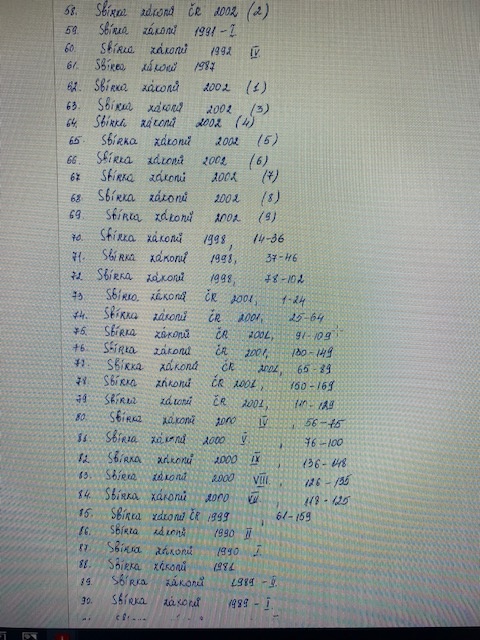 58. Sbírka zákonů ČR 2002 (2)
59. Sbírka zákonů 1991 - I.
60. Sbírka zákonů 1992 IV.
61. Sbírka zákonů 1987
62. Sbírka zákonů 2002 (1)
63. Sbírka zákonů 2002 (3)
64. Sbírka zákonů 2002 (4)
65. Sbírka zákonů 2002 (5)
66. Sbírka zákonů 2002 (6)
67. Sbírka zákonů 2002 (7)
68. Sbírka zákonů 2002 (8)
69. Sbírka zákonů 2002 (9)
70. Sbírka zákonů 1998, 14-36
71. Sbírka zákonů 1998, 37-46
72. Sbírka zákonů 1998, 78-102
73. Sbírka zákonů ČR 2001, 1-24
74. Sbírka zákonů ČR 2001, 25-64
75. Sbírka zákonů ČR 2001, 91-109
76. Sbírka zákonů ČR 2001, 130-149
77. Sbírka zákonů ČR 2001, 65-89
78. Sbírka zákonů ČR 2001, 150-169
79. Sbírka zákonů ČR 2001, 110-129
80. Sbírka zákonů 2000 IV, 56-75
81. Sbírka zákonů 2000 V, 76-100
82. Sbírka zákonů 2000 IX, 136-148
83. Sbírka zákonů 2000 VIII, 126-135
84. Sbírka zákonů 2000 VII, 118-125
85. Sbírka zákonů ČR 1999, 61-159
86. Sbírka zákonů 1990 II
87. Sbírka zákonů 1990 I.
88. Sbírka zákonů 1981
89. Sbírka zákonů 1989 - II.
90. Sbírka zákonů 1989 - I.